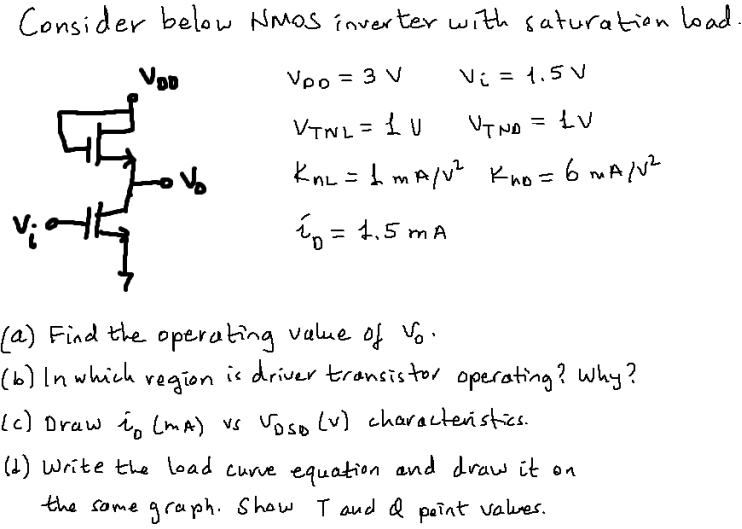 Consider below NMOS inverter with saturation load.
VDD
VDD = 3 V Vi = 1.5 V
VTNL = 1 V VTND = 1V
KnL = 1 mA/V² KnD = 6 mA/V²
Vo
Vi
iD = 1.5 mA
(a) Find the operating value of Vo.
(b) In which region is driver transistor operating? Why?
(c) Draw iD (mA) vs VDSD (V) characteristics.
(d) Write the load curve equation and draw it on
the same graph. Show T and Q point values.